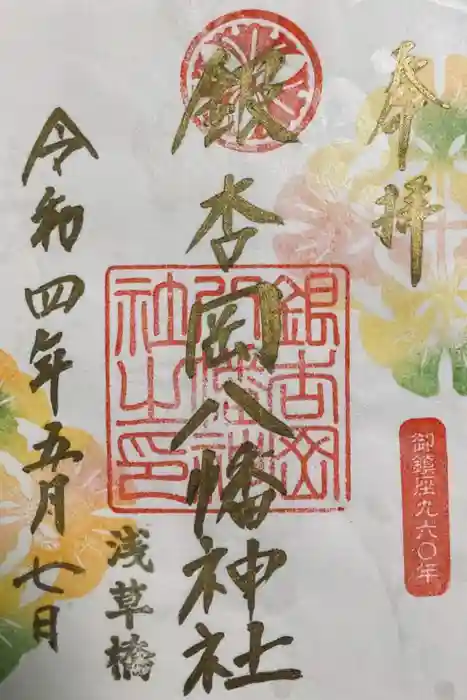 奉拝
御鎮座九六〇年
銀杏岡八幡神社
銀杏岡八幡神社之印
浅草橋
令和四年五月七日